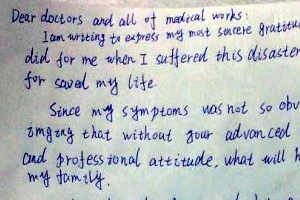 Dear doctors and all of medical works:
I am writing to express my most sincere gratitu
did for me when I suffered this disaster
for saved my life.
Since my symptoms was not so obv
imging that without your advanced
and professional attitude, what will h
my family.